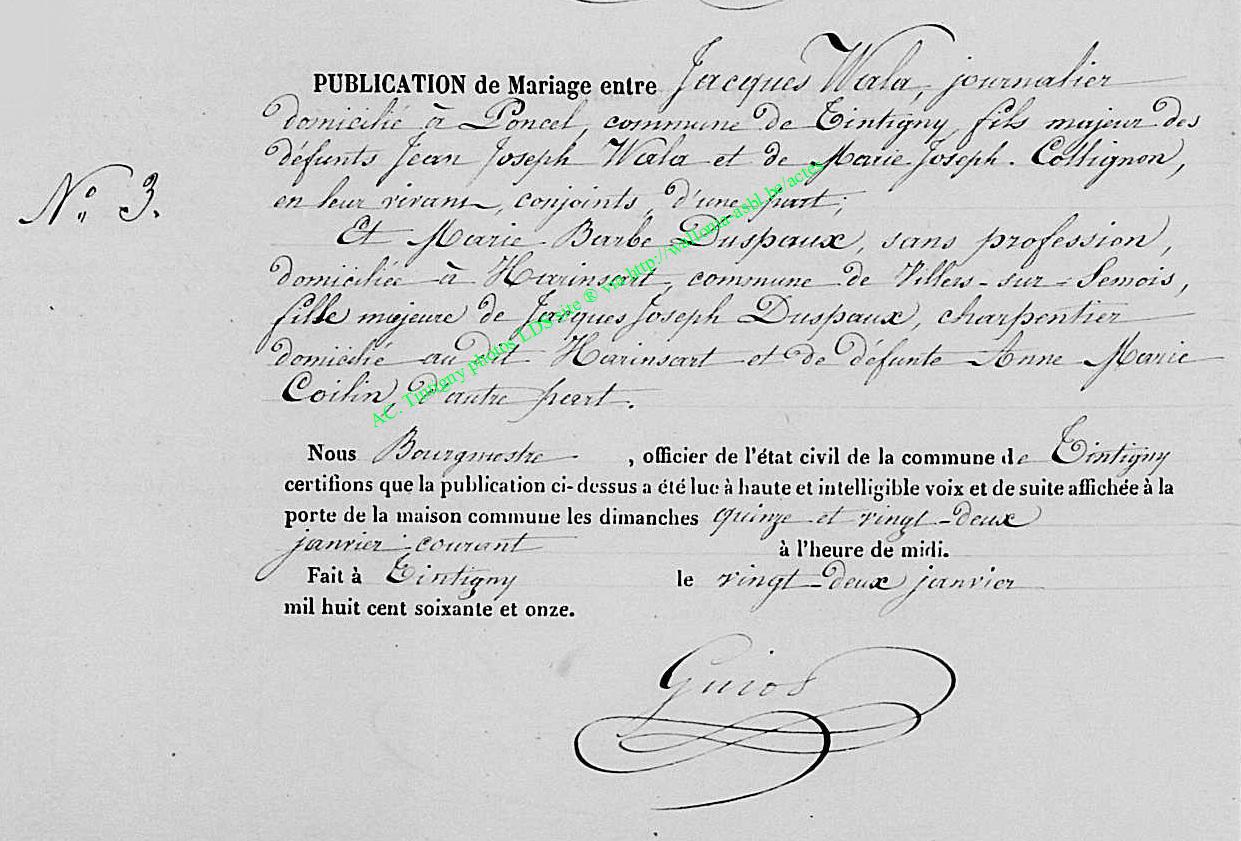 PUBLICATION de Mariage entre Jacques Wala, journalier
domicilié à Poncel, commune de Tintigny, fils majeur des
défunts Jean Joseph Wala et de Marie Joseph. Collignon,
N° 3.
en leur vivant, conjoints, d'une part;
Et Marie Barbe Duspaux, sans profession,
domiciliée à Harinsart, commune de Villers-sur-Semois,
fille majeure de Jacques Joseph Duspaux, charpentier
domicilié au dit Harinsart et de défunte Anne Marie
Coilin, d'autre part.
AC. Tintigny photos LDS site ® via http://wallonia-asbl.be/actes
Nous Bourgmestre, officier de l'état civil de la commune de Tintigny
certifions que la publication ci-dessus a été lue à haute et intelligible voix et de suite affichée à la
porte de la maison commune les dimanches quinze et vingt-deux
janvier courant à l'heure de midi.
Fait à Tintigny le vingt-deux janvier
mil huit cent soixante et onze.
Guiot